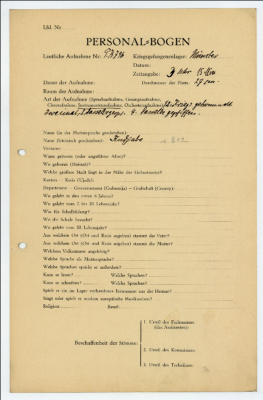 Lfd. Nr.
PERSONAL-BOGEN
Lautliche Aufnahme Nr.: Kriegsgefangenenlager: Münster
Datum:
Zeitangabe: 9 Uhr
Dauer der Aufnahme: Durchmesser der Platte: 27 cm
Raum der Aufnahme:
Art der Aufnahme (Sprechaufnahme, Gesangsaufnahme,
Choraufnahme, Instrumentenaufnahme, Orchesteraufnahme):
zweimal
Name (in der Muttersprache geschrieben):
Name (lateinisch geschrieben):
Vorname:
Wann geboren (oder ungefähres Alter)?
Wo geboren (Heimat)?
Welche größere Stadt liegt in der Nähe des Geburtsortes?
Kanton — Kreis (Ujedh):
Departement — Gouvernement (Gubernija) — Grafschaft (County):
Wo gelebt in den ersten 6 Jahren?
Wo gelebt vom 7. bis 20. Lebensjahr?
Was für Schulbildung?
Wo die Schule besucht?
Wo gelebt vom 20. Lebensjahr?
Aus welchem Ort (Ort und Kreis angeben) stammt der Vater?
Aus welchem Ort (Ort und Kreis angeben) stammt die Mutter?
Welchem Volksstamm angehörig?
Welche Sprache als Muttersprache?
Welche Sprachen spricht er außerdem?
Kann er lesen? Welche Sprachen?
Kann er schreiben? Welche Sprachen?
Spielt er ein im Lager vorhandenes Instrument aus der Heimat?
Singt oder spielt er modern europäische Musikweisen?
Religion: Beruf:
1. Urteil des Fachmannes
(des Assistenten):
Beschaffenheit der Stimme:
2. Urteil des Kommissars:
3. Urteil des Technikers: